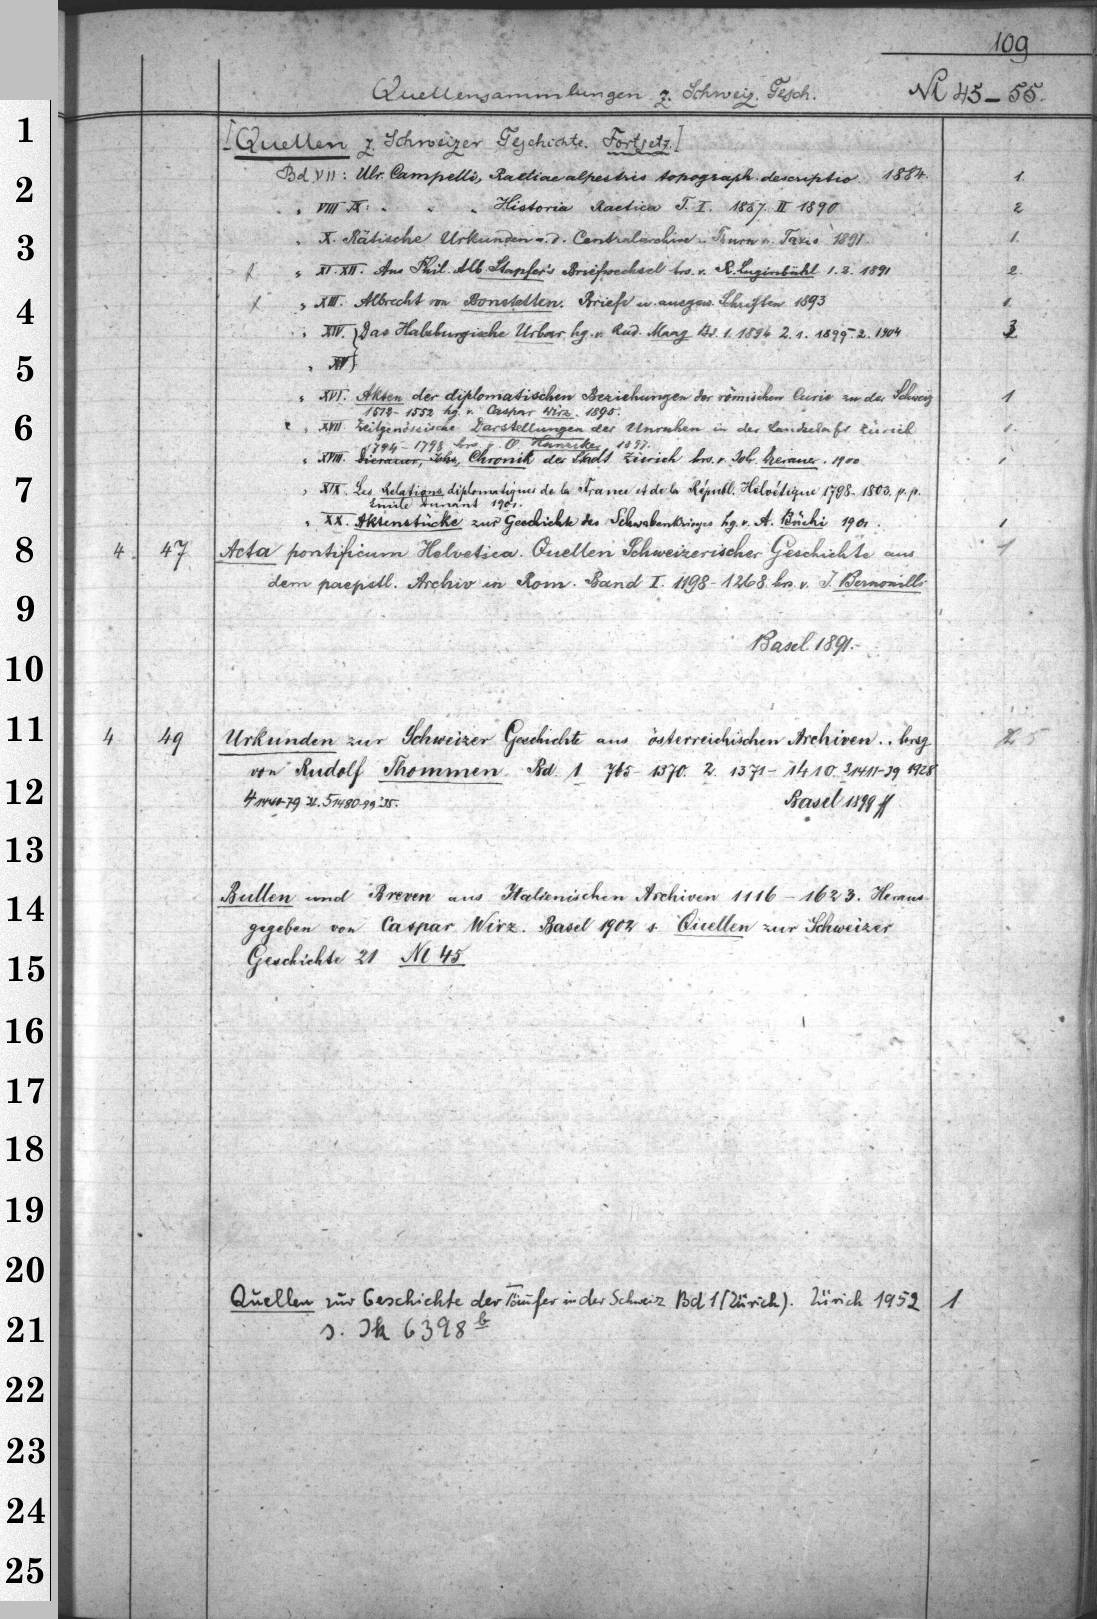 109
Quellensammlungen z. Schweiz. Gesch. Nl 45-55.
1
[Quellen z. Schweizer Geschichte. Fortsetz.]
2
Bd VII: Ulr. Campelli, Raetiae alpestris topograph. descriptio 1884. 1.
" VIII IX: " " " Historia Raetica T. I. 1887. II 1890 2
3
" X. Rätische Urkunden a. d. Centralarchive Thurn u. Taxis 1891. 1.
" XI. XII. Aus Phil. Alb. Stapfer's Briefwechsel hrs. v. R. Luginbühl 1. 2. 1891 2.
4
" XIII. Albrecht von Bonstetten. Briefe u. ausgew. Schriften 1893 1.
" XIV. } Das Habsburgische Urbar hg. v. Rud. Maag Bd. 1. 1894 2. 1. 1899. 2. 1904 3
5
" XV }
" XVI. Akten der diplomatischen Beziehungen der römischen Curie zu der Schweiz 1
1512-1552 hg. v. Caspar Wirz. 1895.
6
" XVII. Zeitgenössische Darstellungen der Unruhen in der Landschaft Zürich 1.
1794-1798 hrs. v. O. Hunziker 1897.
" XVIII. Dierauer, Joh., Chronik der Stadt Zürich hrs. v. Joh. Dierauer. 1900 1
7
" XIX. Les Relations diplomatiques de la France et de la Républ. Helvétique 1798-1803. p. p.
Emile Dunant 1901.
" XX. Aktenstücke zur Geschichte des Schwabenkrieges hg. v. A. Büchi 1901. 1
8
4. 47 Acta pontificum Helvetica. Quellen Schweizerischer Geschichte aus 1
dem paepstl. Archiv in Rom. Band I. 1198-1268. hrs. v. J. Bernoulli
9
Basel 1891.
10
11
4 49 Urkunden zur Schweizer Geschichte aus österreichischen Archiven .. hrsg 5
von Rudolf Thommen. Bd. 1 765-1370. 2. 1371-1410. 3 1411-39 1928
12
4 1440-79 32. 5 1480-99 '35. Basel 1899 ff
13
14
Bullen und Breven aus Italienischen Archiven 1116-1623. Heraus-
gegeben von Caspar Wirz. Basel 1902 s. Quellen zur Schweizer
15
Geschichte 21 Nl 45
16
17
18
19
20
Quellen zur Geschichte der Täufer in der Schweiz Bd 1 (Zürich). Zürich 1952 1
21
s. Jk 6398 b
22
23
24
25